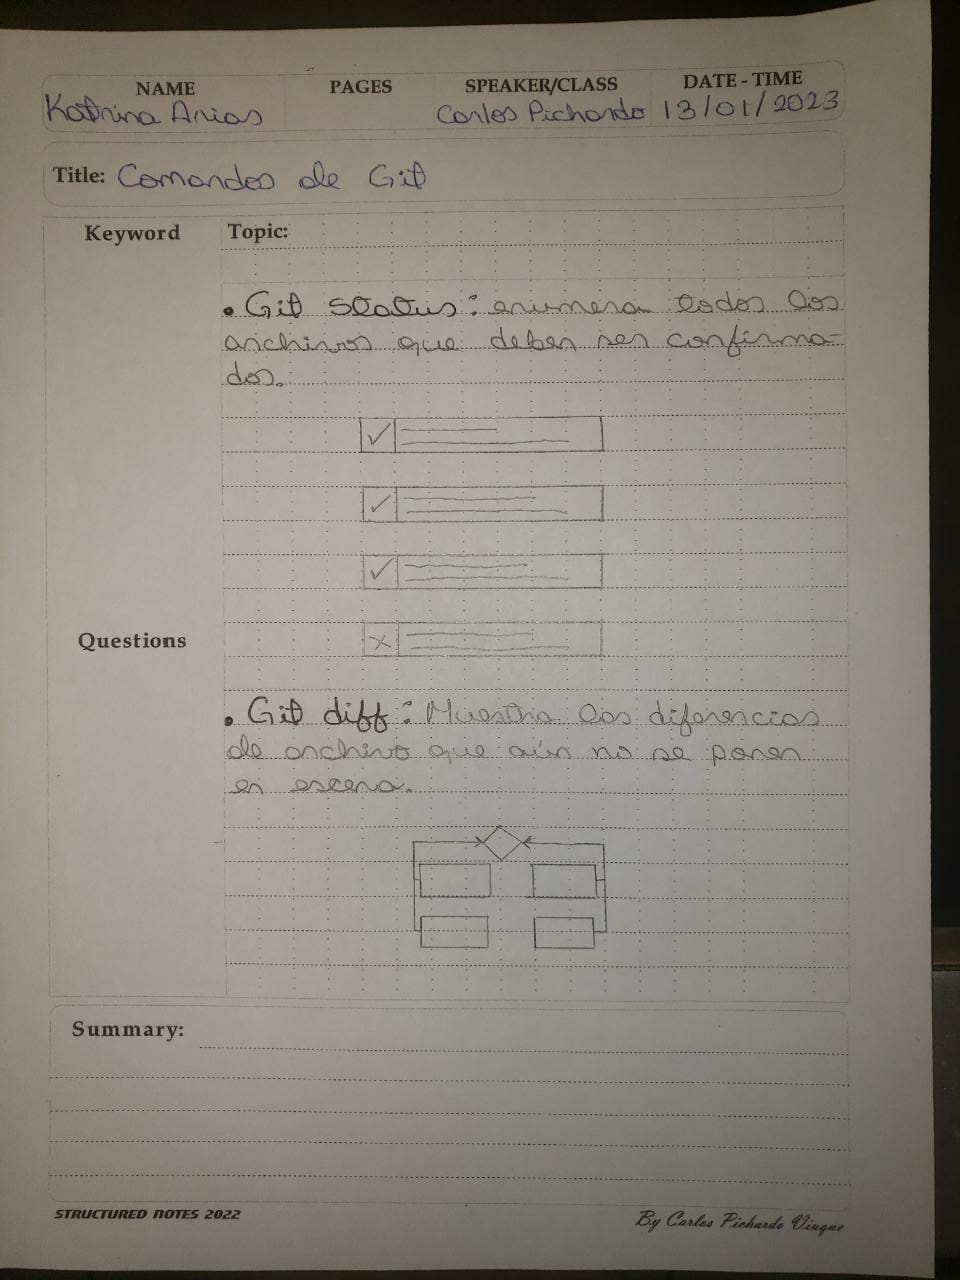 NAME PAGES SPEAKER/CLASS DATE - TIME
Katrina Arias Carlos Pichardo 13/01/2023
Title: Comandos de Git
Keyword Topic:
• Git status: enumera todos los
archivos que deben ser confirma-
dos.
Questions
• Git diff: Muestra las diferencias
de archivo que aún no se ponen
en escena.
Summary:
STRUCTURED NOTES 2022 By Carlos Pichardo Viuque